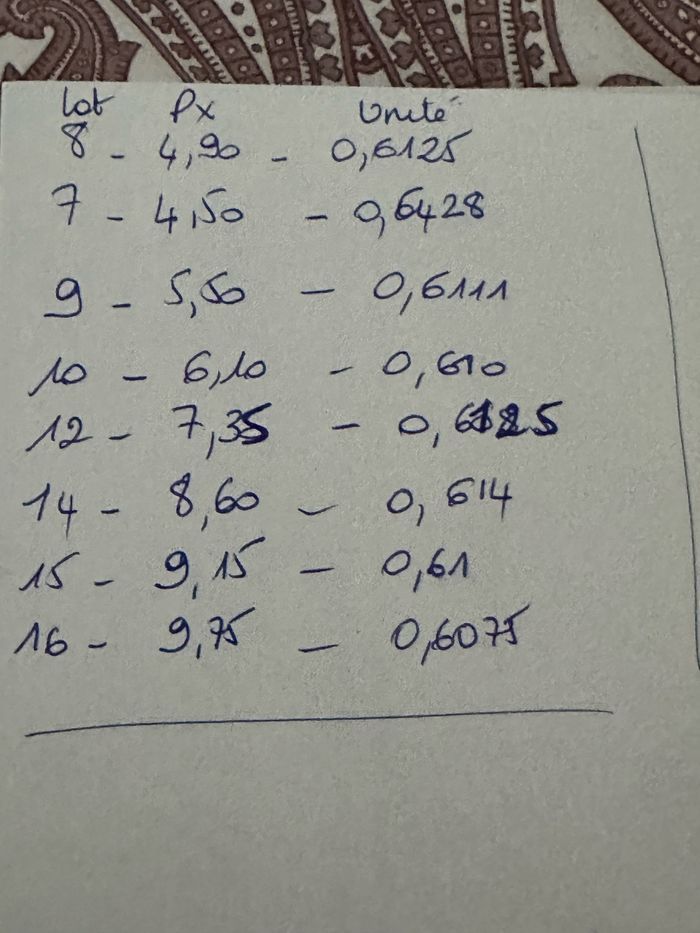 Lot Px Unité
8 - 4,90 - 0,6125
7 - 4,50 - 0,6428
9 - 5,50 - 0,6111
10 - 6,10 - 0,610
12 - 7,35 - 0,6125
14 - 8,60 - 0,614
15 - 9,15 - 0,61
16 - 9,75 - 0,6075